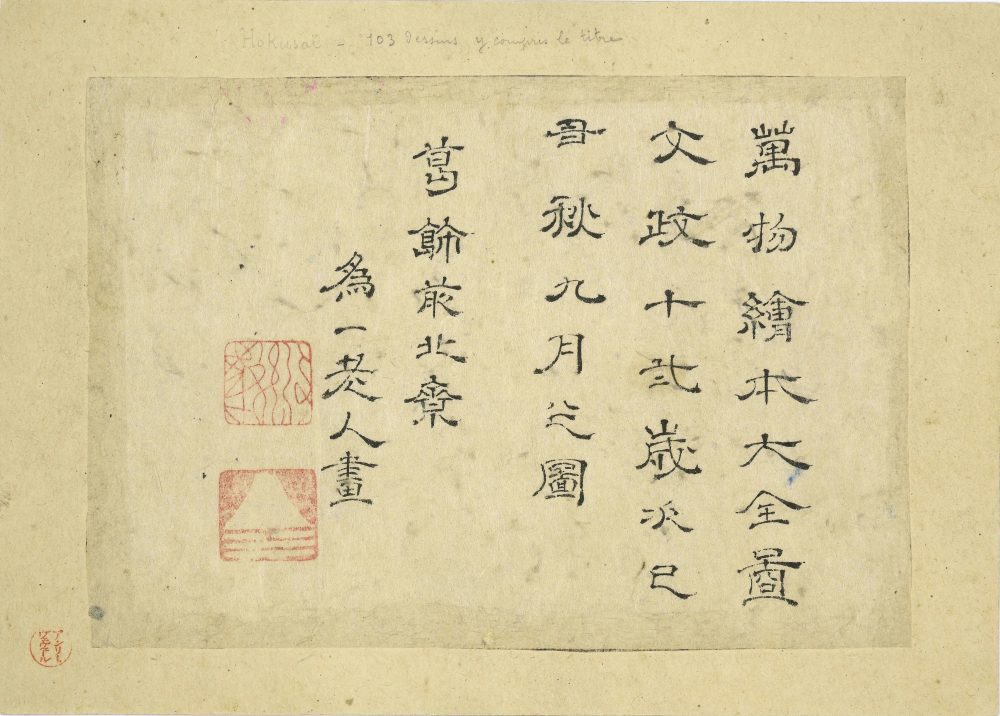 Hokusaï - 103 dessins y compris le titre
萬物繪本大全圖
文政十弍歳次己
丑秋九月之圖
葛飾前北齋
為一老人畫
アンリー
ヴェヴェル